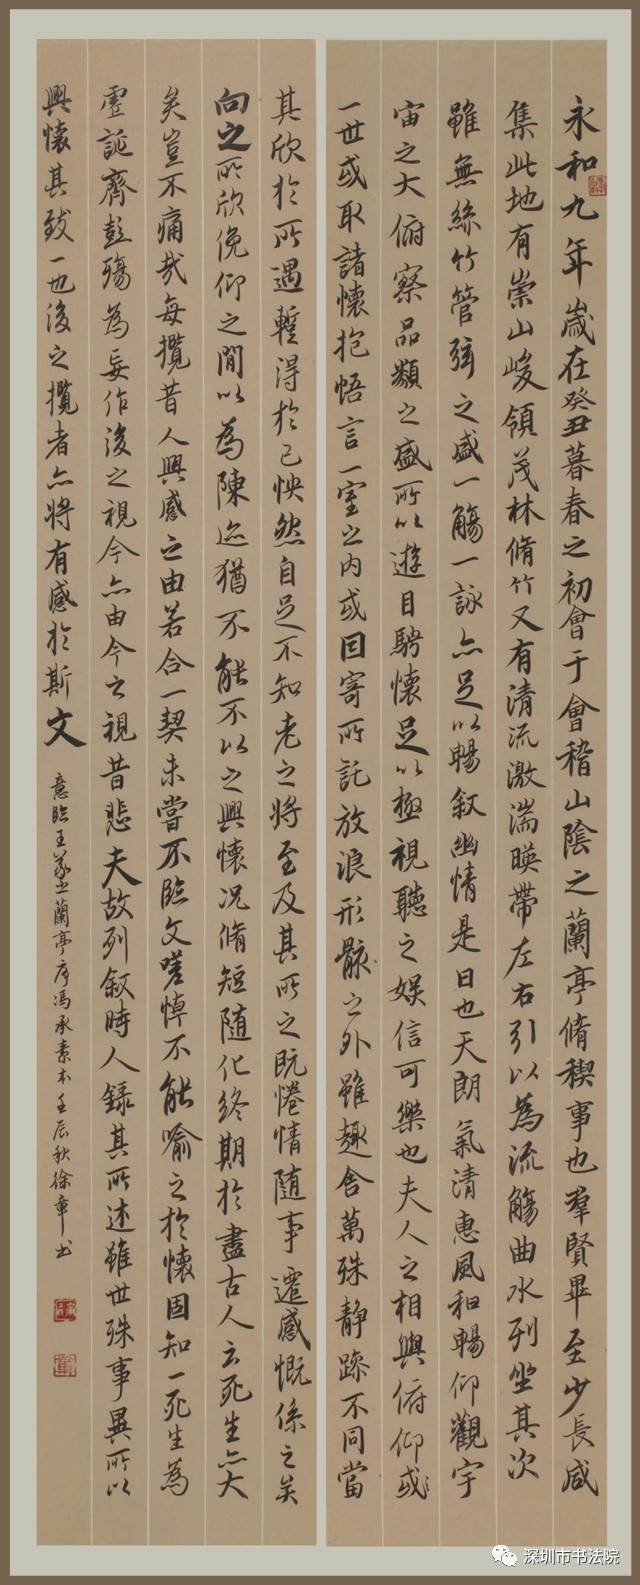 永和九年歲在癸丑暮春之初會于會稽山陰之蘭亭脩稧事也羣賢畢至少長咸
集此地有崇山峻領茂林脩竹又有清流激湍暎帶左右引以為流觴曲水列坐其次
雖無絲竹管弦之盛一觴一詠亦足以暢叙幽情是日也天朗氣清惠風和暢仰觀宇
宙之大俯察品類之盛所以遊目騁懷足以極視聽之娛信可樂也夫人之相與俯仰或
一世或取諸懷抱悟言一室之內或因寄所託放浪形骸之外雖趣舍萬殊静躁不同當
其欣於所遇蹔得於己怏然自足不知老之將至及其所之既惓情隨事遷感慨係之矣
向之所欣俛仰之閒以為陳迹猶不能不以之興懷况脩短隨化終期於盡古人云死生亦大
矣豈不痛哉每攬昔人興感之由若合一契未嘗不臨文嗟悼不能喻之於懷固知一死生為
虛誕齊彭殤為妄作後之視今亦由今之視昔悲夫故列叙時人錄其所述雖世殊事異所以
興懷其致一也後之攬者亦將有感於斯文
意臨王羲之蘭亭序冯承素本壬辰秋徐章书
深圳市书法院